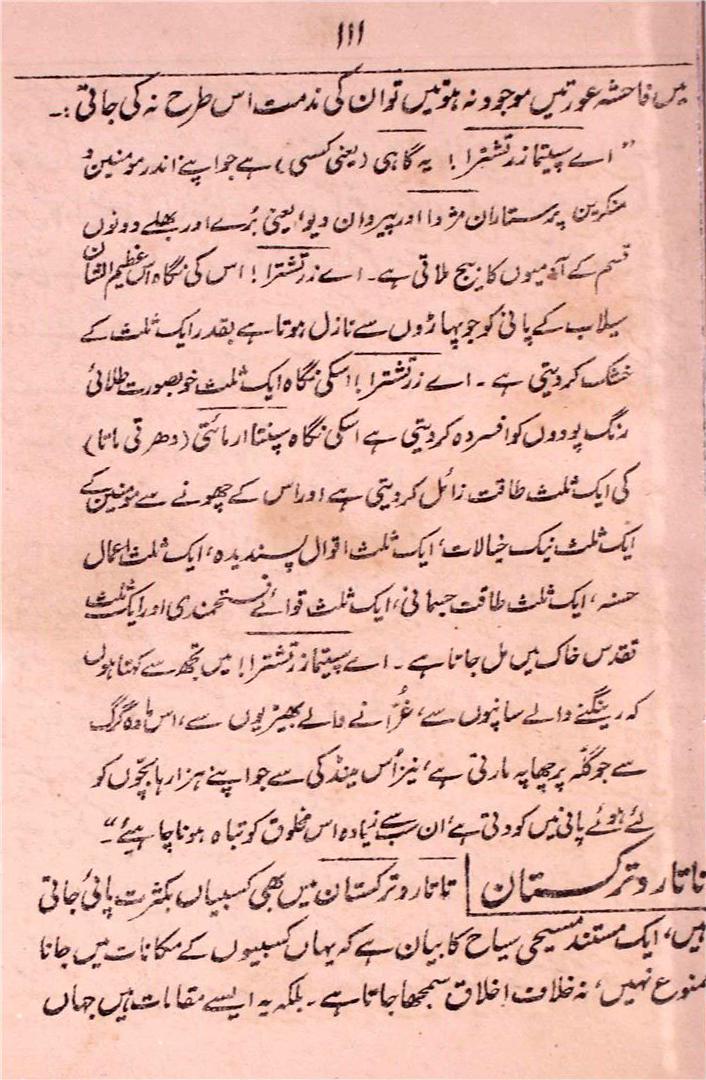 ۱۱۱
میں فاحشہ عورتیں موجود نہ ہوتیں تو ان کی مذمت اس طرح نہ کی جاتی :۔
"اے سپیتما زرتشترا! یہ گاہی (یعنی کسبی) ہے جو اپنے اندر مومنین و
منکرین پرستاران مژدا اور پیروان دیو، یعنی بُرے اور بھلے دونوں
قسم کے آدمیوں کا بیج ملاتی ہے۔ اے زرتشترا! اس کی نگاہ اس عظیم الشان
سیلاب کے پانی کو جو پہاڑوں سے نازل ہوتا ہے بقدر ایک ثلث کے
خشک کر دیتی ہے۔ اے زرتشترا! اسکی نگاہ ایک ثلث خوبصورت طلائی
رنگ پودوں کو افسردہ کر دیتی ہے اسکی نگاہ سپنتا ارمائتی (دھرتی ماتا)
کی ایک ثلث طاقت زائل کر دیتی ہے اور اس کے چھونے سے مومنین کے
ایک ثلث نیک خیالات، ایک ثلث اقوال پسندیدہ، ایک ثلث اعمال
حسنہ، ایک ثلث طاقت جسمانی، ایک ثلث قوائے فتحمندی اور ایک ثلث
تقدس خاک میں مل جاتا ہے۔ اے سپیتما زرتشترا! میں تجھ سے کہتا ہوں
کہ رینگنے والے سانپوں سے، غُرّانے والے بھیڑیوں سے، اس مادہ گرگ
سے جو گلّہ پر چھاپہ مارتی ہے، نیز اُس مینڈکی سے جو اپنے ہزارہا بچّوں کو
لئے ہوئے پانی میں کودتی ہے، ان سب سے زیادہ اس مخلوق کو تباہ ہونا چاہیئے"۔
تاتار و ترکستان تاتار و ترکستان میں بھی کسبیاں بکثرت پائی جاتی
ہیں، ایک مستند مسیحی سیاح کا بیان ہے کہ یہاں کسبیوں کے مکانات میں جانا
ممنوع نہیں، نہ خلاف اخلاق سمجھا جاتا ہے۔ بلکہ یہ ایسے مقامات ہیں جہاں